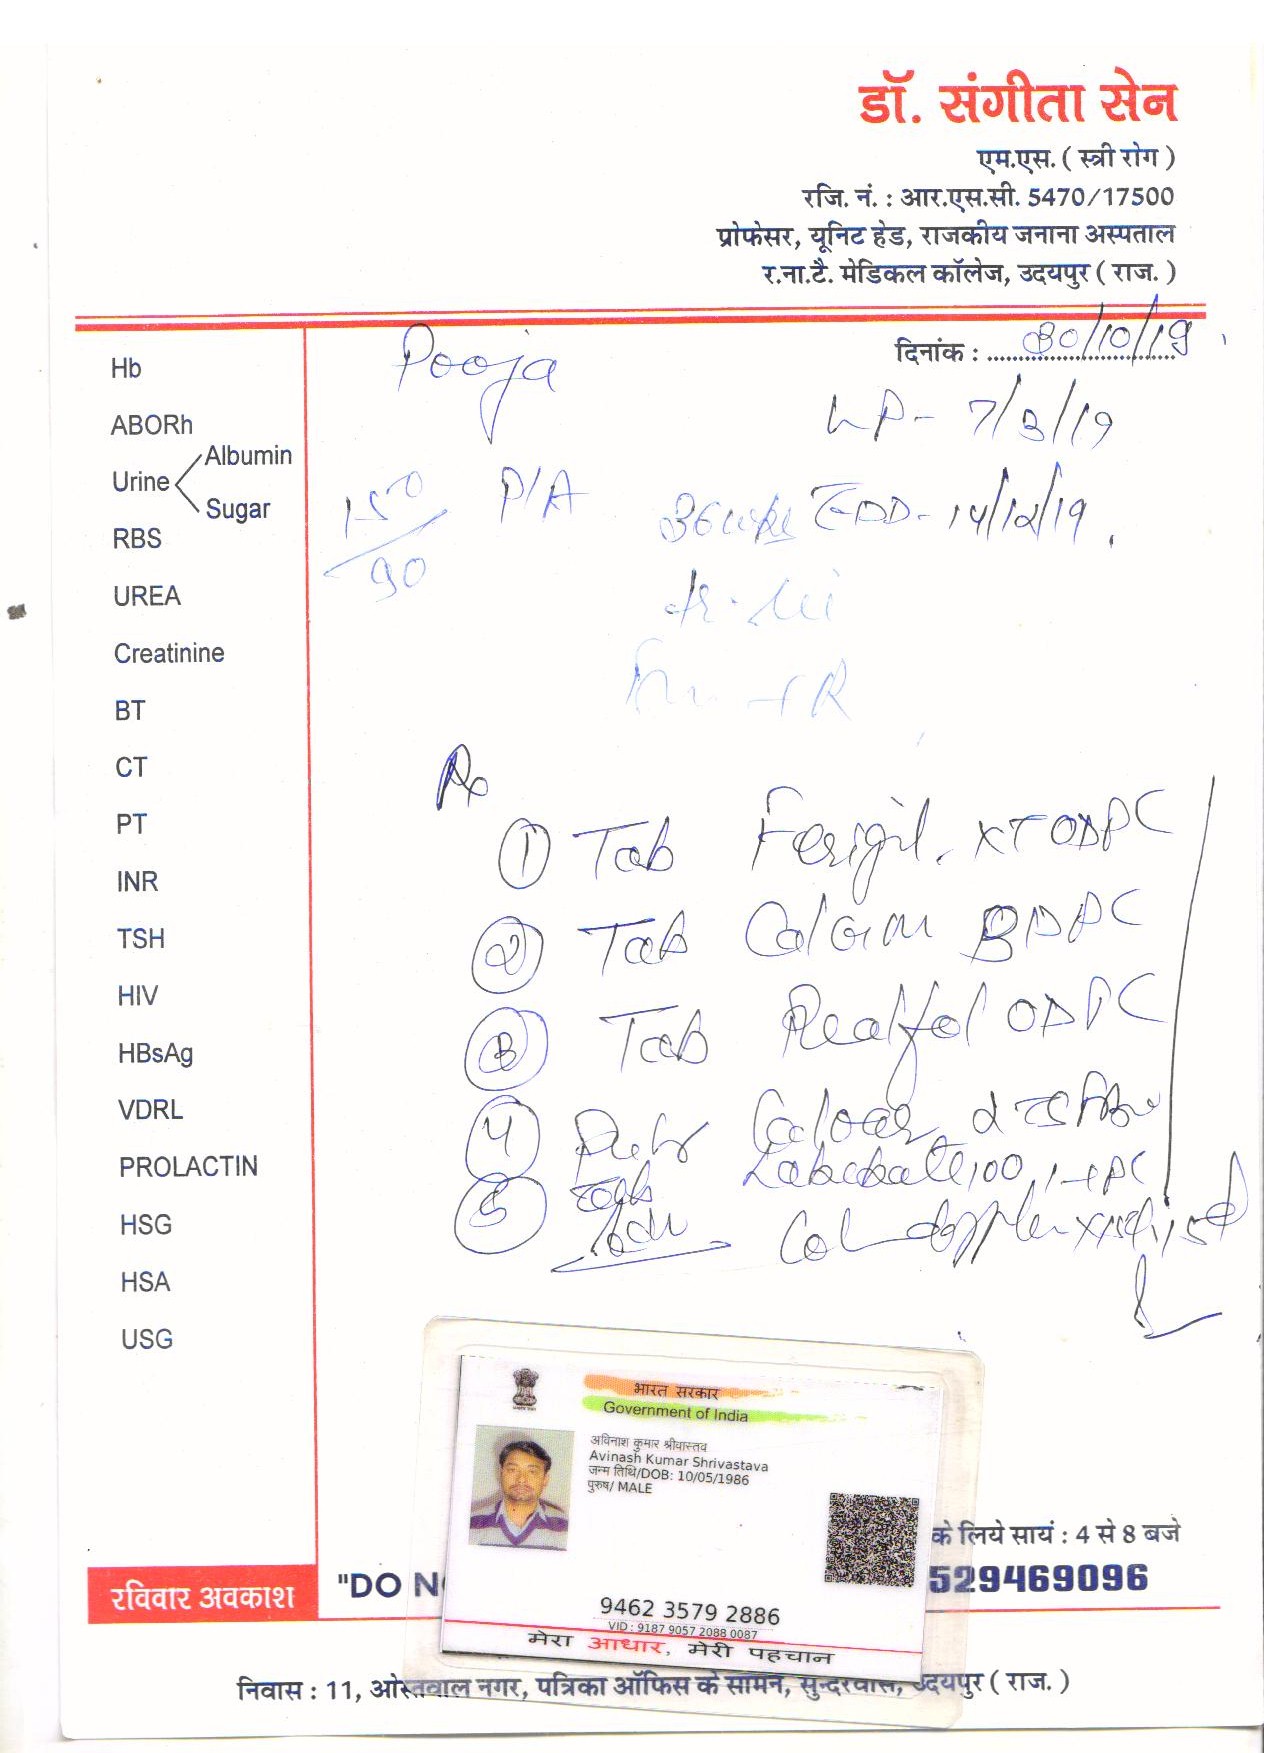 डॉ. संगीता सेन
एम.एस. ( स्त्री रोग )
रजि. नं. : आर.एस.सी. 5470/17500
प्रोफेसर, यूनिट हेड, राजकीय जनाना अस्पताल
र.ना.टै. मेडिकल कॉलेज, उदयपुर ( राज. )
दिनांक : 30/10/19
Pooja
LP- 7/3/19
150/90
P/A
36 wks
EDD- 14/12/19
Hb
ABORh
Urine
Albumin
Sugar
RBS
UREA
Creatinine
BT
CT
PT
INR
TSH
HIV
HBsAg
VDRL
PROLACTIN
HSG
HSA
USG
Rx
1 Tab Ferigil-XT OD PC
2 Tab BD PC
3 Tab OD PC
4
5 Tab 100
Adv Col doppler
भारत सरकार
Government of India
अविनाश कुमार श्रीवास्तव
Avinash Kumar Shrivastava
जन्म तिथि/DOB: 10/05/1986
पुरुष/ MALE
9462 3579 2886
VID : 9187 9057 2088 0087
मेरा आधार, मेरी पहचान
के लिये सायं : 4 से 8 बजे
रविवार अवकाश
"DO
529469096
निवास : 11, ओस्तवाल नगर, पत्रिका ऑफिस के सामने, सुन्दरवास, उदयपुर ( राज. )